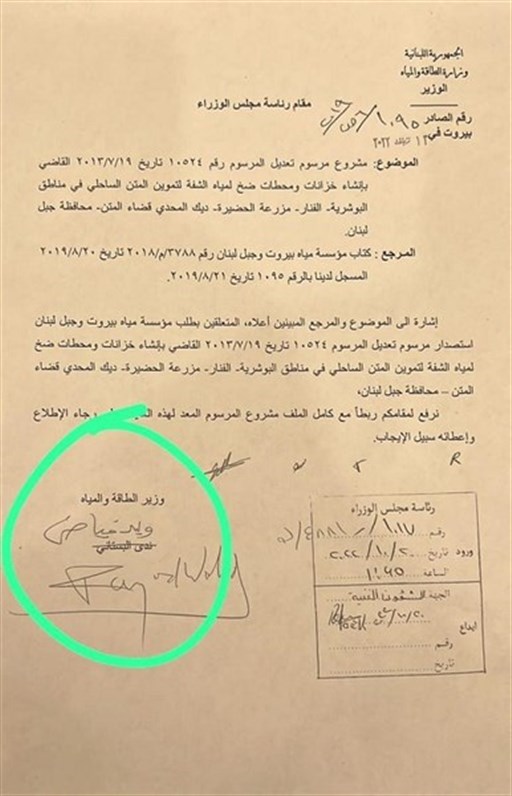 الجمهورية اللبنانية
وزارة الطاقة والمياه
الوزير
مقام رئاسة مجلس الوزراء
رقم الصادر ١٠٩٥/
بيروت في ١٢ ٢٠٢٢
الموضوع: مشروع مرسوم تعديل المرسوم رقم ١٠٥٢٤ تاريخ ٢٠١٣/٧/١٩ القاضي
بإنشاء خزانات ومحطات ضخ لمياه الشفة لتموين المتن الساحلي في مناطق
البوشرية- الفنار- مزرعة الحضيرة- ديك المحدي قضاء المتن- محافظة جبل
لبنان.
المرجع : كتاب مؤسسة مياه بيروت وجبل لبنان رقم ٣٧٨٨/م/٢٠١٨ تاريخ ٢٠١٩/٨/٢٠
المسجل لدينا بالرقم ١٠٩٥ تاريخ ٢٠١٩/٨/٢١.
إشارة الى الموضوع والمرجع المبينين أعلاه، المتعلقين بطلب مؤسسة مياه بيروت وجبل لبنان
استصدار مرسوم تعديل المرسوم ١٠٥٢٤ تاريخ ٢٠١٣/٧/١٩ القاضي بإنشاء خزانات ومحطات ضخ
لمياه الشفة لتموين المتن الساحلي في مناطق البوشرية- الفنار- مزرعة الحضيرة- ديك المحدي قضاء
المتن – محافظة جبل لبنان،
نرفع لمقامكم ربطاً مع كامل الملف مشروع المرسوم المعد لهذه رجاء الإطلاع
وإعطائه سبيل الإيجاب.
وزير الطاقة والمياه
وليد فياض
ندى البستاني
رئاسة مجلس الوزراء
رقم ١٠١٧/
ورود تاريخ ٢٠٢٢/١٠/٢٠
الساعة
الجهة الشؤون الفنية
إيداع
رقم
تاريخ